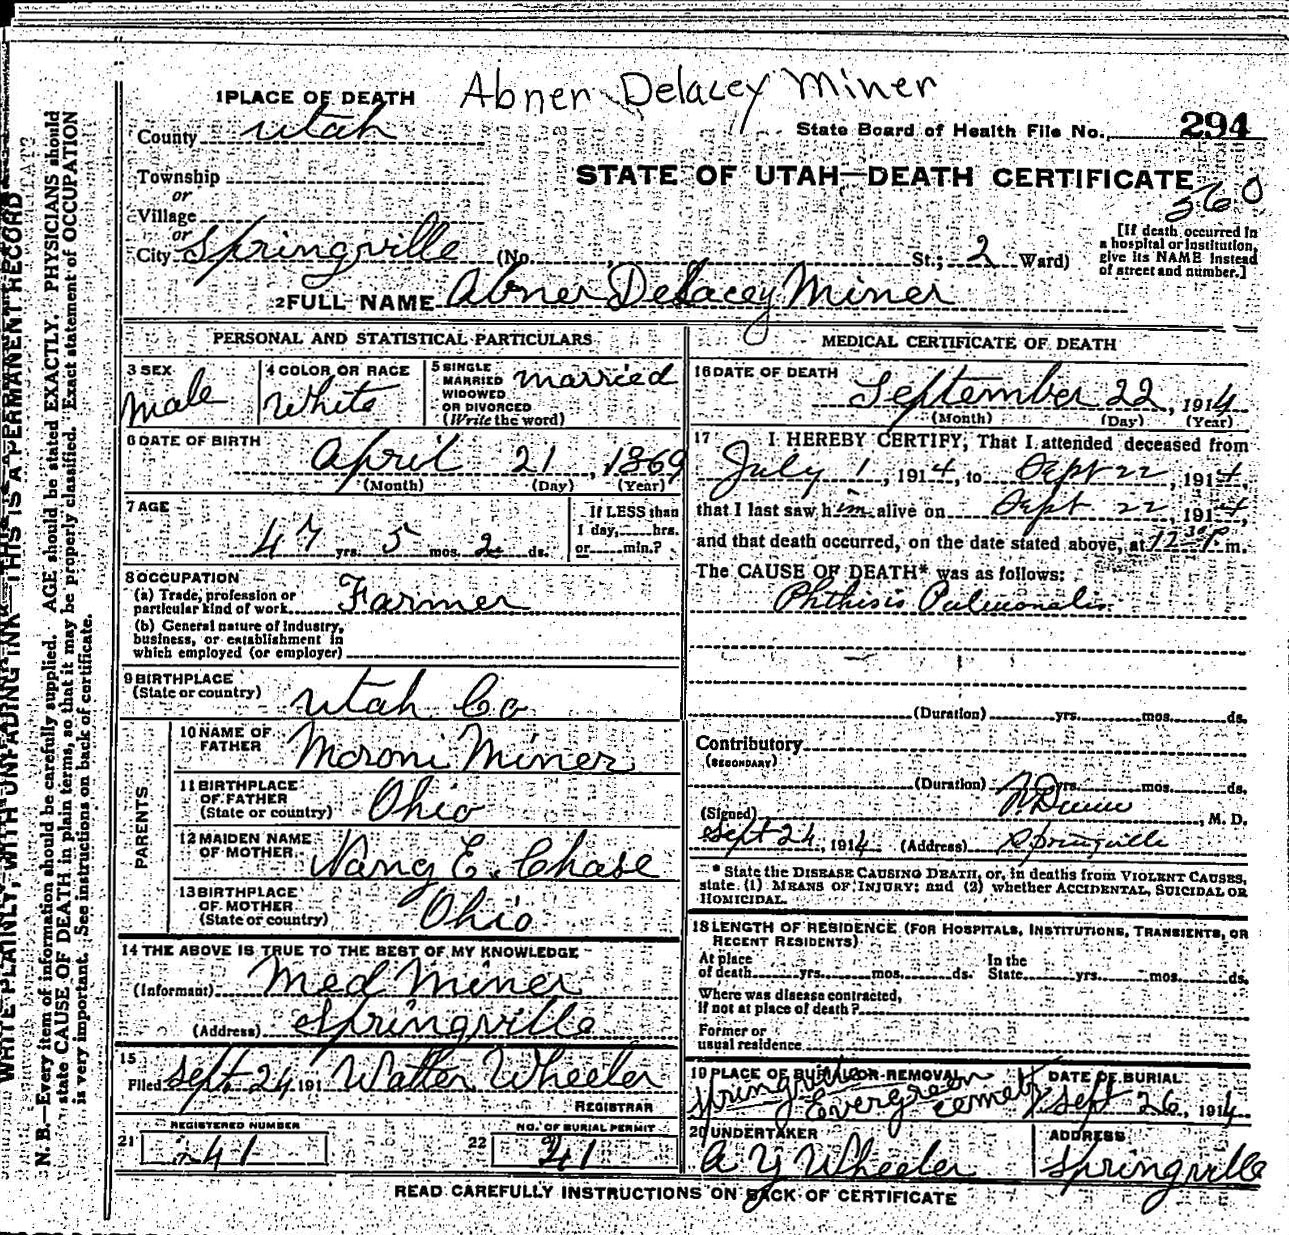 Abner Delacey Miner
1 PLACE OF DEATH
County Utah
State Board of Health File No. 294
Township
or
Village
or
City Springville (No. St.; 2 Ward)
STATE OF UTAH—DEATH CERTIFICATE
360
[If death occurred in
a hospital or institution,
give its NAME instead
of street and number.]
2 FULL NAME Abner Delacey Miner
PERSONAL AND STATISTICAL PARTICULARS
3 SEX
Male
4 COLOR OR RACE
White
5 SINGLE
MARRIED
WIDOWED
OR DIVORCED
(Write the word)
married
6 DATE OF BIRTH
April 21, 1869
(Month) (Day) (Year)
7 AGE
47 yrs. 5 mos. 2 ds.
If LESS than
1 day, hrs.
or min.?
8 OCCUPATION
(a) Trade, profession or
particular kind of work Farmer
(b) General nature of Industry,
business, or establishment in
which employed (or employer)
9 BIRTHPLACE
(State or country) Utah Co
PARENTS
10 NAME OF
FATHER Moroni Miner
11 BIRTHPLACE
OF FATHER
(State or country) Ohio
12 MAIDEN NAME
OF MOTHER Nancy E. Chase
13 BIRTHPLACE
OF MOTHER
(State or country) Ohio
14 THE ABOVE IS TRUE TO THE BEST OF MY KNOWLEDGE
(Informant) Med Miner
(Address) Springville
15
Filed Sept. 24 191 Walter Wheeler
REGISTRAR
21 REGISTERED NUMBER
41
22 NO. OF BURIAL PERMIT
41
MEDICAL CERTIFICATE OF DEATH
16 DATE OF DEATH
September 22, 1914
(Month) (Day) (Year)
17 I HEREBY CERTIFY, That I attended deceased from
July 1, 1914, to Sept 22, 1914,
that I last saw him alive on Sept 22, 1914,
and that death occurred, on the date stated above, at 12:30 P. m.
The CAUSE OF DEATH* was as follows:
Phthisis Pulmonalis
(Duration) yrs. mos. ds.
Contributory
(SECONDARY)
(Duration) yrs. mos. ds.
(Signed) , M. D.
Sept 24, 1914 (Address) Springville
* State the DISEASE CAUSING DEATH, or, in deaths from VIOLENT CAUSES,
state (1) MEANS OF INJURY; and (2) whether ACCIDENTAL, SUICIDAL OR
HOMICIDAL.
18 LENGTH OF RESIDENCE (FOR HOSPITALS, INSTITUTIONS, TRANSIENTS, OR
RECENT RESIDENTS)
At place
of death yrs. mos. ds.
In the
State yrs. mos. ds.
Where was disease contracted,
if not at place of death?
Former or
usual residence
19 PLACE OF BURIAL OR REMOVAL
Springville
Evergreen cemetry
DATE OF BURIAL
Sept 26, 1914
20 UNDERTAKER
A Y Wheeler
ADDRESS
Springville
READ CAREFULLY INSTRUCTIONS ON BACK OF CERTIFICATE
WRITE PLAINLY, WITH UNFADING INK—THIS IS A PERMANENT RECORD
N. B.—Every item of information should be carefully supplied. AGE should be stated EXACTLY. PHYSICIANS should
state CAUSE OF DEATH in plain terms, so that it may be properly classified. Exact statement of OCCUPATION
is very important. See instructions on back of certificate.